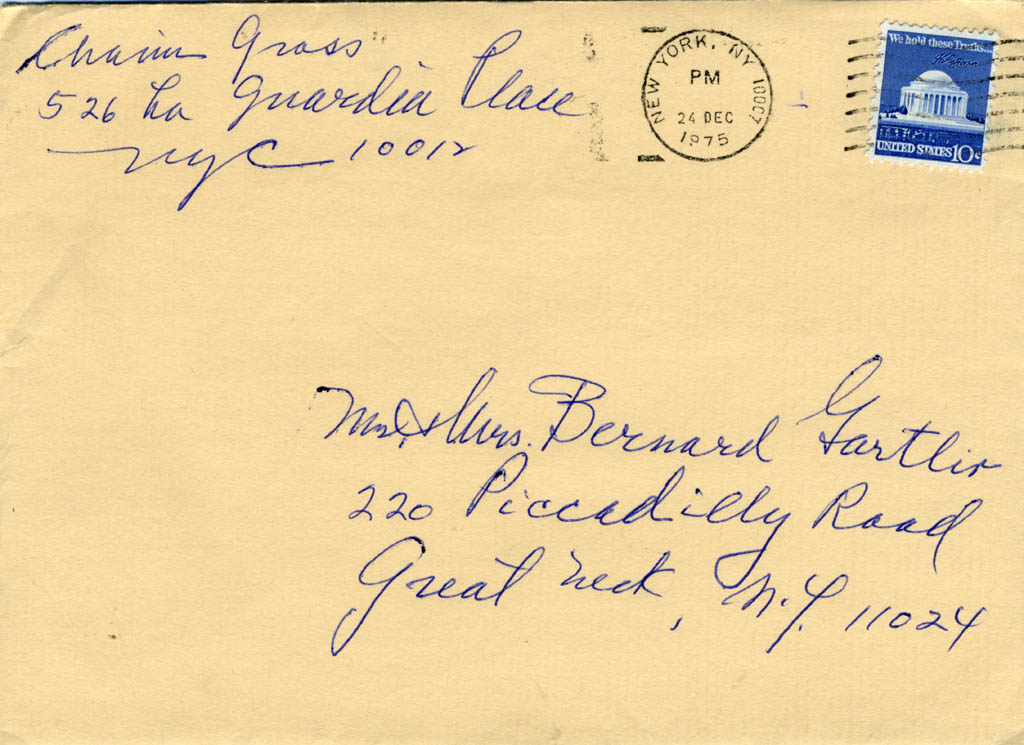 Chaim Gross
526 La Guardia Place
NYC 10012
NEW YORK, NY 10007
PM
24 DEC
1975
We hold these Truths...
UNITED STATES 10c
Mr. & Mrs. Bernard Gartlir
220 Piccadilly Road
Great Neck, N.Y. 11024